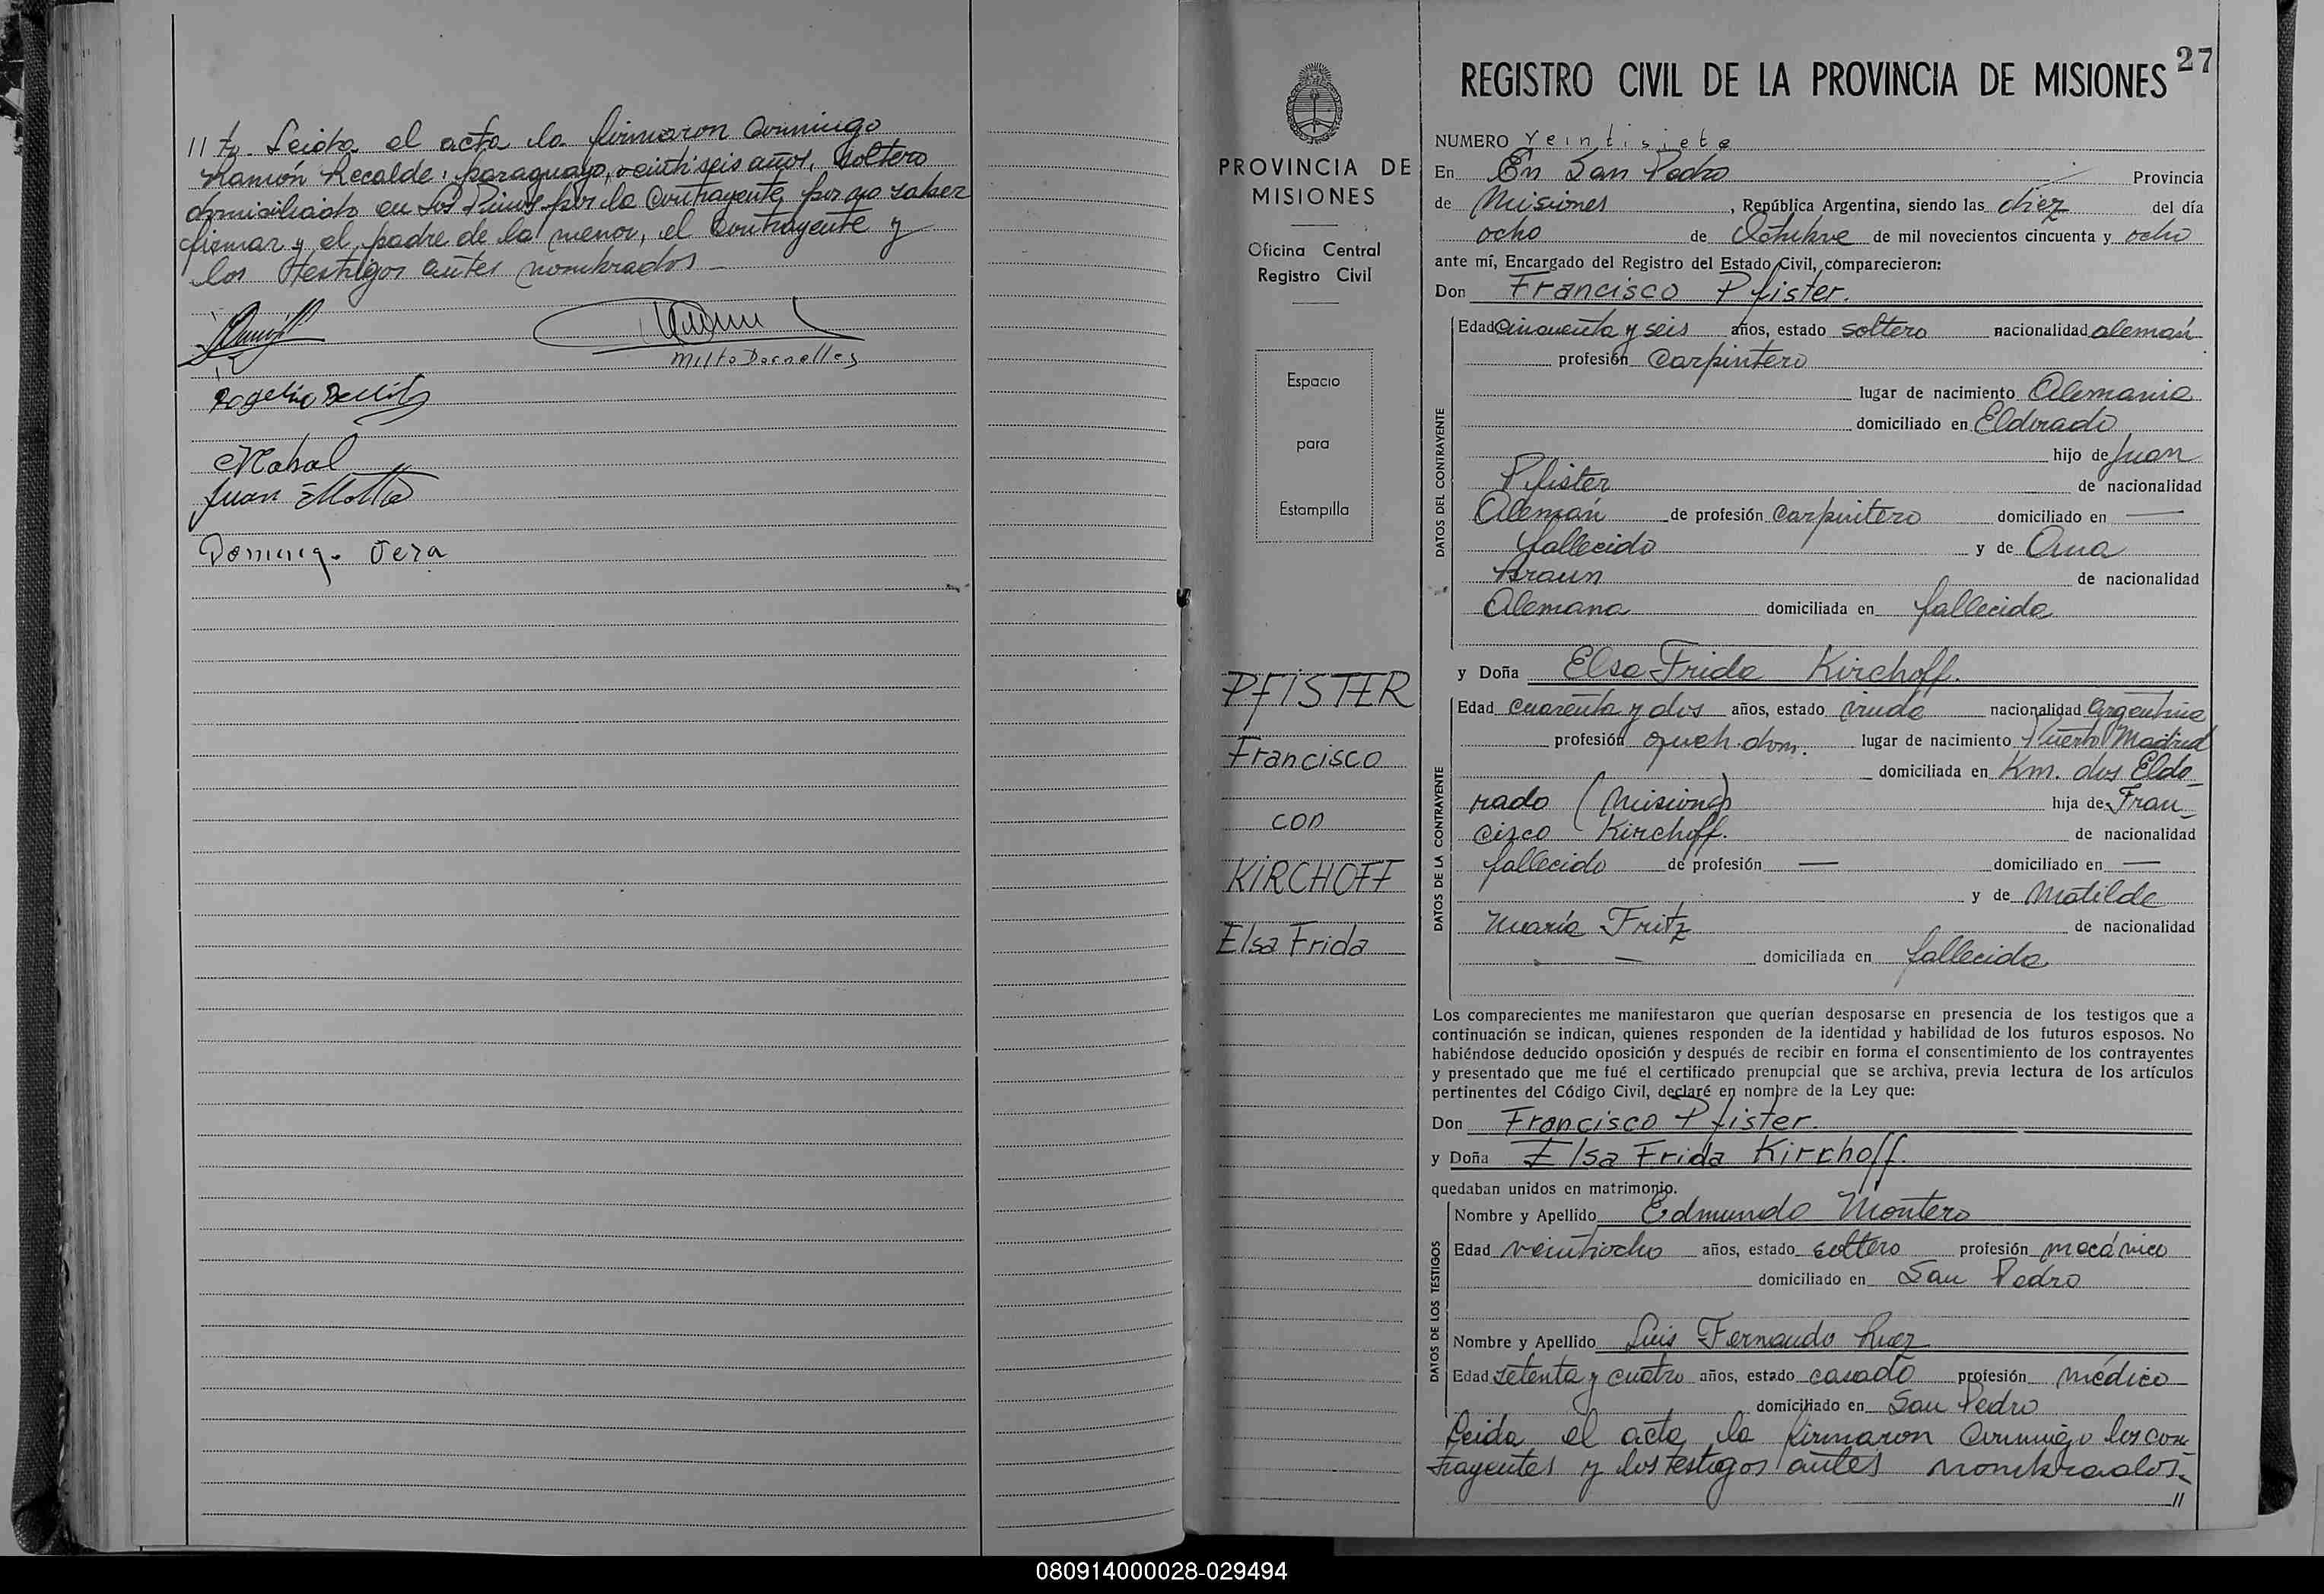 11 to. Leida el acta la firmaron conmigo
Ramón Recalde, paraguayo, veintiseis años, soltero
domiciliado en Los Pinos por la contrayente, por no saber
firmar y el padre de la menor, el contrayente y
los testigos antes nombrados —
Milto Dornelles
Rogelio
Juan Motta
Domingo Vera
PROVINCIA DE
MISIONES
Oficina Central
Registro Civil
Espacio
para
Estampilla
PFISTER
Francisco
con
KIRCHOFF
Elsa Frida
27
REGISTRO CIVIL DE LA PROVINCIA DE MISIONES
NUMERO veintisiete
En En San Pedro Provincia
de Misiones, República Argentina, siendo las diez del día
ocho de Octubre de mil novecientos cincuenta y ocho
ante mí, Encargado del Registro del Estado Civil, comparecieron:
Don Francisco Pfister.
DATOS DEL CONTRAYENTE
Edad cincuenta y seis años, estado soltero nacionalidad alemán
profesión Carpintero
lugar de nacimiento Alemania
domiciliado en Eldorado
hijo de Juan
Pfister de nacionalidad
Alemán de profesión Carpintero domiciliado en —
fallecido y de Ana
Braun de nacionalidad
Alemana domiciliada en fallecida
y Doña Elsa Frida Kirchoff.
DATOS DE LA CONTRAYENTE
Edad cuarenta y dos años, estado viuda nacionalidad Argentina
profesión queh. dom. lugar de nacimiento Puerto Madrid
domiciliada en Km. dos Eldo
rado (Misiones) hija de Fran_
cisco Kirchoff. de nacionalidad
fallecido de profesión — domiciliado en —
y de Matilde
María Fritz de nacionalidad
— — domiciliada en fallecida
Los comparecientes me manifestaron que querían desposarse en presencia de los testigos que a
continuación se indican, quienes responden de la identidad y habilidad de los futuros esposos. No
habiéndose deducido oposición y después de recibir en forma el consentimiento de los contrayentes
y presentado que me fué el certificado prenupcial que se archiva, previa lectura de los artículos
pertinentes del Código Civil, declaré en nombre de la Ley que:
Don Francisco Pfister.
y Doña Elsa Frida Kirchoff.
quedaban unidos en matrimonio.
DATOS DE LOS TESTIGOS
Nombre y Apellido Edmundo Montero
Edad veintiocho años, estado soltero profesión mecánico
domiciliado en San Pedro
Nombre y Apellido Luis Fernando
Edad setenta y cuatro años, estado casado profesión médico
domiciliado en San Pedro
Leida el acta la firmaron conmigo los con_
trayentes y los testigos antes nombrados._
11
080914000028-029494